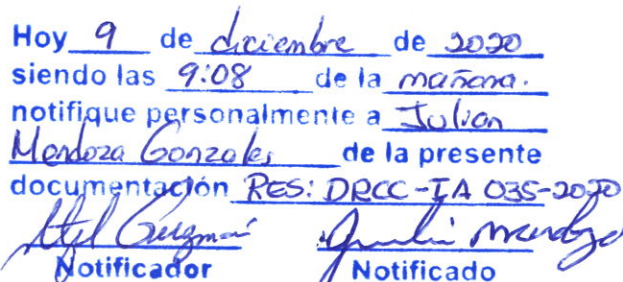 Hoy 9 de diciembre de 2020
siendo las 9:08 de la mañana.
notifique personalmente a Julian
Mendoza Gonzales de la presente
documentación RES: DRCC-IA 035-2020
Notificador Notificado